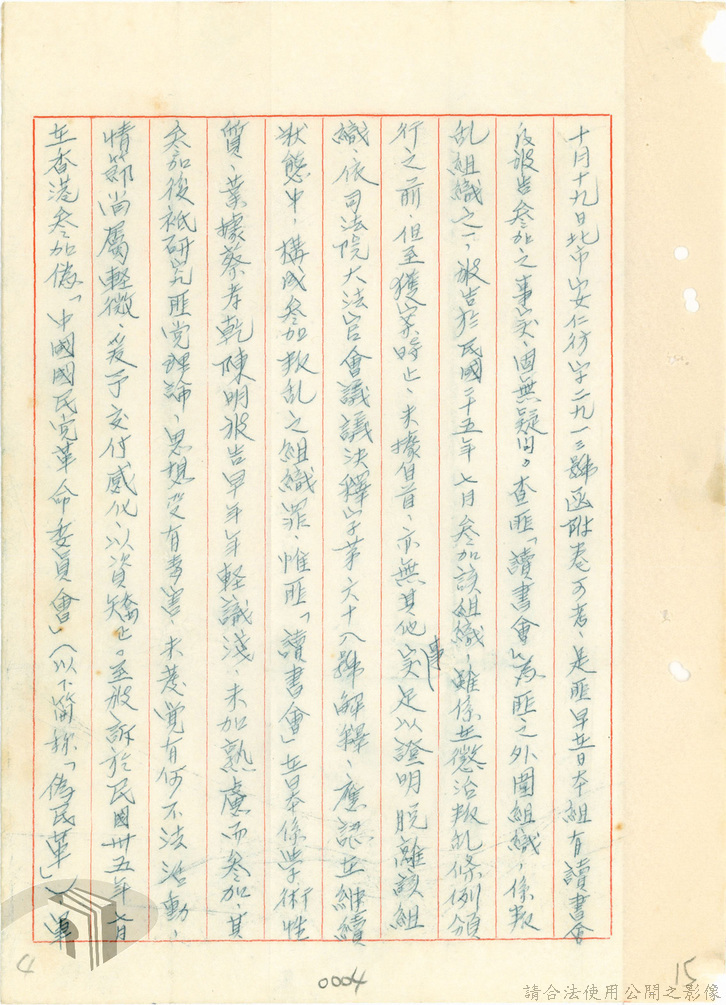 十月十九日北市安仁行字二九一三號函附卷可考、是匪早在日本組有讀書會
及被告參加之事实、固無疑问。查匪「讀書會」為匪之外圍組織、係叛
乱組織之一、被告於民國二十五年七月參加該組織、雖係在懲治叛乱條例頒
行之前、但至獲案時止、未據自首、亦無其他事实足以證明脫離該組
織、依司法院大法官會議議決釋字第六十八號解釋、應認在繼續
狀態中、構成參加叛乱之組織罪、惟匪「讀書會」在日係學術性
質、業據蔡孝乾陳明被告早年年輕識淺、未加熟慮而參加、其
參加後祇研究匪党理論、思想受有毒害、未發覺有何不法活動、
情節尚屬輕微、爰予交付感化、以資矯正。至被訴於民國卅五年七月
在香港參加偽「中國國民党革命委員會」（以下簡称「偽民革」）單
4
0004
15
請合法使用公開之影像